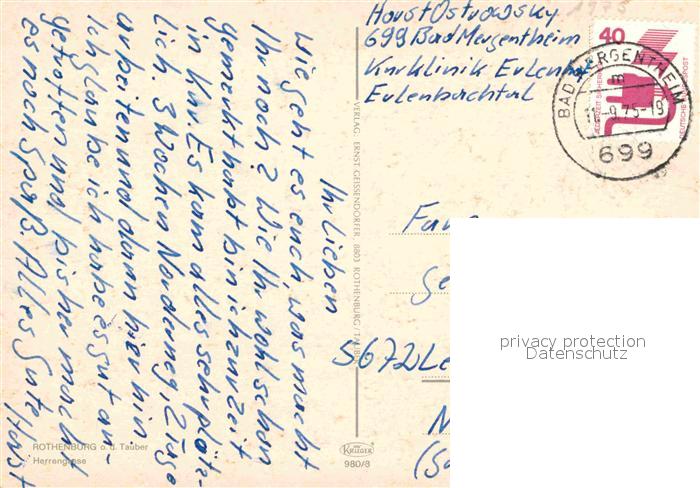 Horst Ostrowsky
699 Bad Mergentheim
Kurklinik Eulenhof
Eulenbachtal
40
JEDERZEIT SICHERHEIT
DEUTSCHE BUNDESPOST
BAD MERGENTHEIM
m
-9.75-19
699
Ihr Lieben
Wie geht es euch, was macht
Ihr noch? Wie Ihr wohl schon
gemerkt habt bin ich zur Zeit
in Kur. Es kam alles sehr plötz-
lich 3 Wochen Norderney, 2 Tage
arbeiten und dann hier hin.
Ich glaube ich habe es gut an-
getroffen und bisher macht
es noch Spaß. Alles Gute
Horst
VERLAG ERNST GEISSENDÖRFER, 8803 ROTHENBURG/TAUBER
Fam
5672 Le
ROTHENBURG o. d. Tauber
Herrengasse
KRÜGER
980/8
privacy protection
Datenschutz